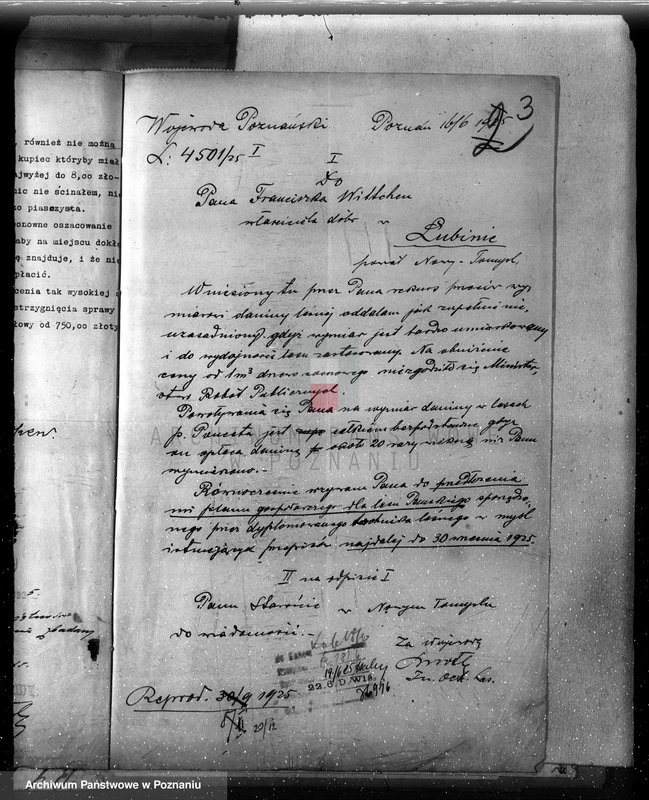 , również nie można
kupiec któryby miał
ajwyżej do 8,oo zło-
nic nie ścinałem, ni
o piaszczysta.
onowne oszacowanie
aby na miejscu dokł
ę znajduje, i że nie
płacić.
cenia tak wysokiej
strzygnięcia sprawy
łowy od 750,oo złoty
3
Wojewoda Poznański Poznań 16/6 1925.
L: 4501/25 I
I
Do
Pana Franciszka Wittchen
właściciela dóbr w
Łubinie
powiat Nowy-Tomyśl
Wniesiony tu przez Pana rekurs przeciw wy
miarowi daniny leśnej oddalam jak zupełnie nie
uzasadniony gdyż wymiar jest bardzo umiarkowany
i do wydajności lasu zastosowany. Na obniżenie
ceny od 1 m³ drzewa nie zgodziło się Minister-
stwo Robót Publicznych.
Powoływanie się Pana na wymiar daniny w lasach
p. jest całkiem bezpodstawne gdyż
on opłaca daninę około 20 razy większą niż Panu
wymierzono.-
Równocześnie wzywam Pana do przedłożenia
mi planu gospodarczego dla lasu Pańskiego sporządzo-
nego przez dyplomowanego technika leśnego w myśl
istniejących przepisów najdalej do 30 września 1925.
II na odpisie I
Panu Staroście w Nowym Tomyślu
do wiadomości.-
Za Wojewodę
22. 6. D. Wis.
Reprod. 30/9 1925.
29/12
ARCHIWUM PAŃSTWOWE
W POZNANIU
Archiwum Państwowe w Poznaniu